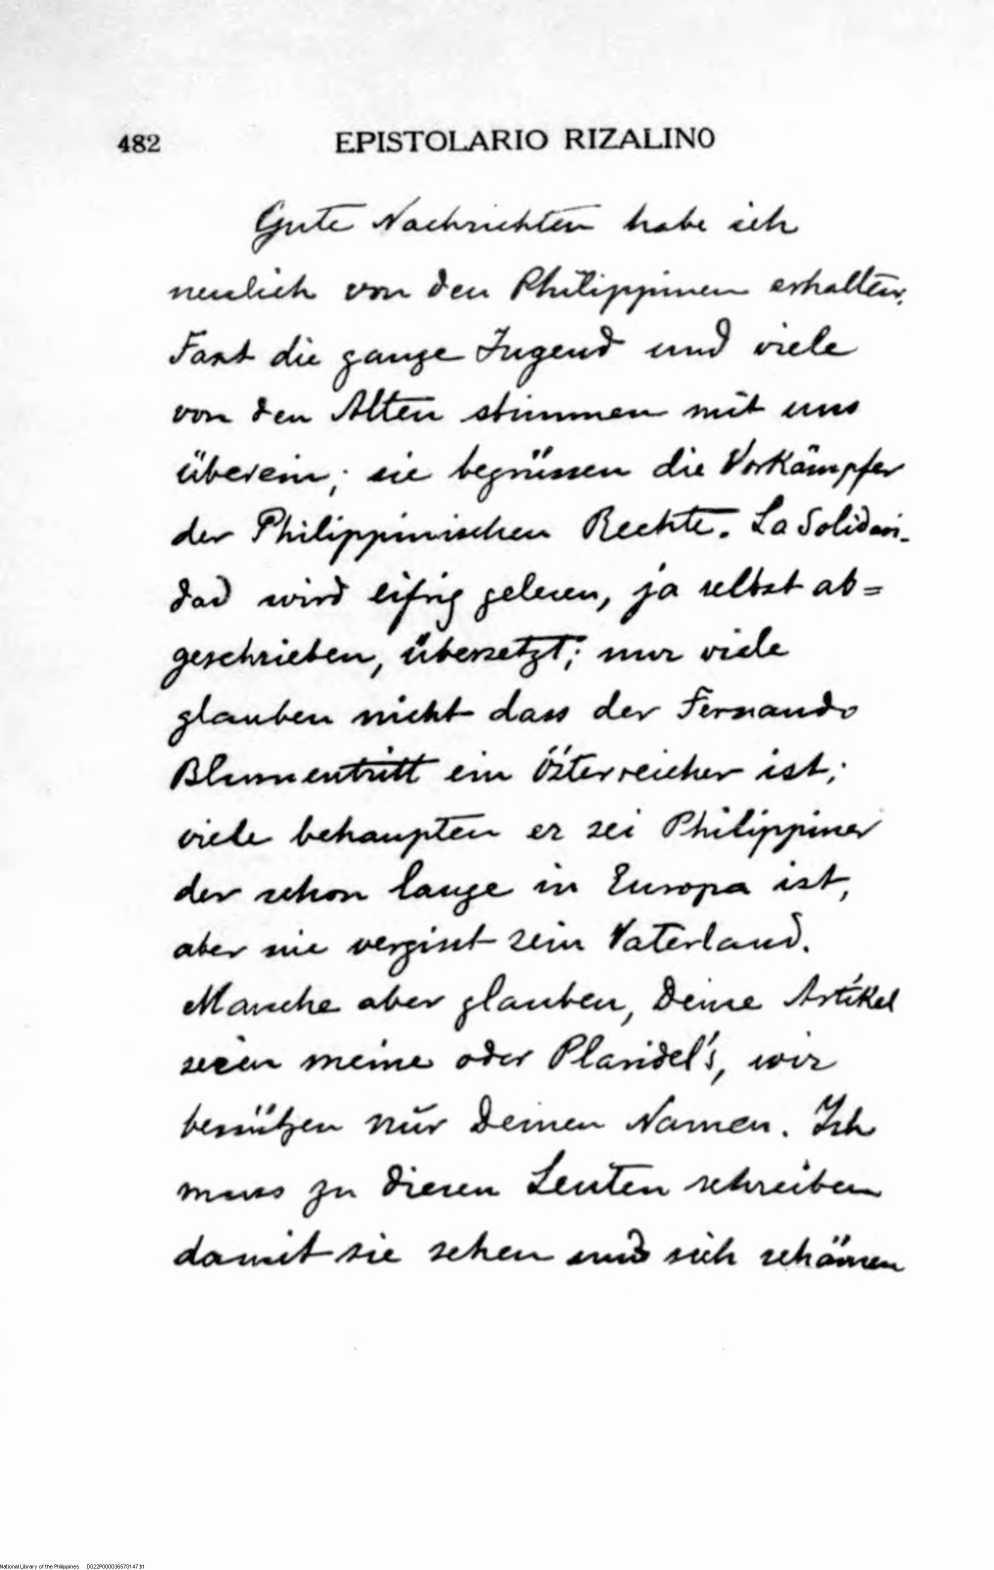 482 EPISTOLARIO RIZALINO
Gute Nachrichten habe ich
neulich von den Philippinen erhalten.
Fast die ganze Jugend und viele
von den Alten stimmen mit uns
überein; sie begrüssen die Vorkämpfer
der Philippinischen Rechte. La Solidari-
dad wird eifrig gelesen, ja selbst ab=
geschrieben, übersetzt; nur viele
glauben nicht dass der Fernando
Blumentritt ein Österreicher ist;
viele behaupten er sei Philippiner
der schon lange in Europa ist,
aber nie vergisst sein Vaterland.
Manche aber glauben, Deine Artikel
seien meine oder Plaridel's, wir
benützen nur Deinen Namen. Ich
muss zu diesen Leuten schreiben
damit sie sehen und sich schämen
National Library of the Philippines